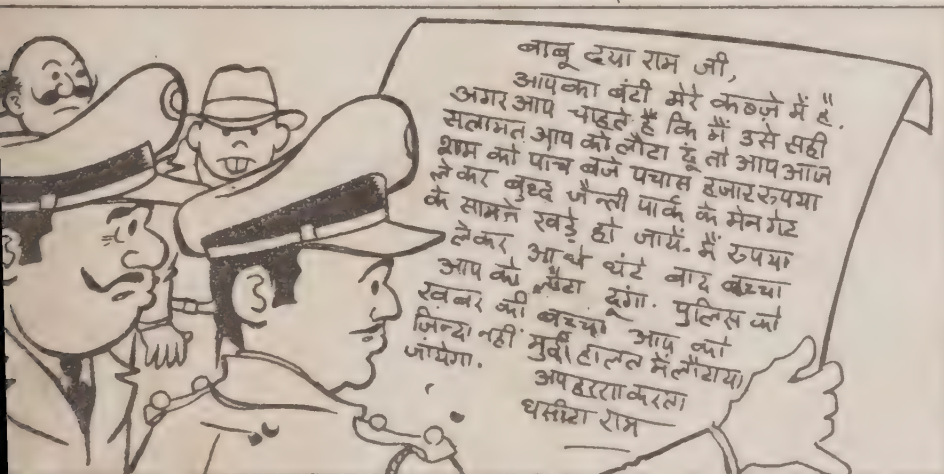 बाबू दया राम जी,
आपका बंटी मेरे कब्ज़े में है.
अगर आप चाहते हैं कि मैं उसे सही
सलामत आप को लौटा दूं तो आप आज
शाम को पांच बजे पचास हजार रुपया
लेकर बुध्द जैन्ती पार्क के मेन गेट
के सामने खड़े हो जायें. मैं रुपया
लेकर आधे घंटे बाद बच्चा
आप को लौटा दूंगा. पुलिस को
खबर की बच्चा आप को
ज़िन्दा नहीं मुर्दा हालत में लौटाया
जायेगा.
अपहरणकरता
घसीटा राम